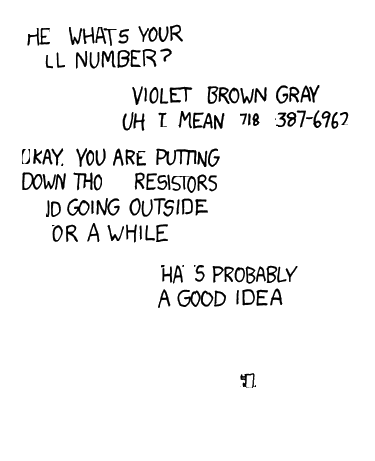 WHATS YOUR
NUMBER?
VIOLET BROWN GRAY
UH I MEAN 718 387-6962
OKAY. YOU ARE PUTTING
DOWN RESISTORS
GOING OUTSIDE
A WHILE
PROBABLY
A GOOD IDEA